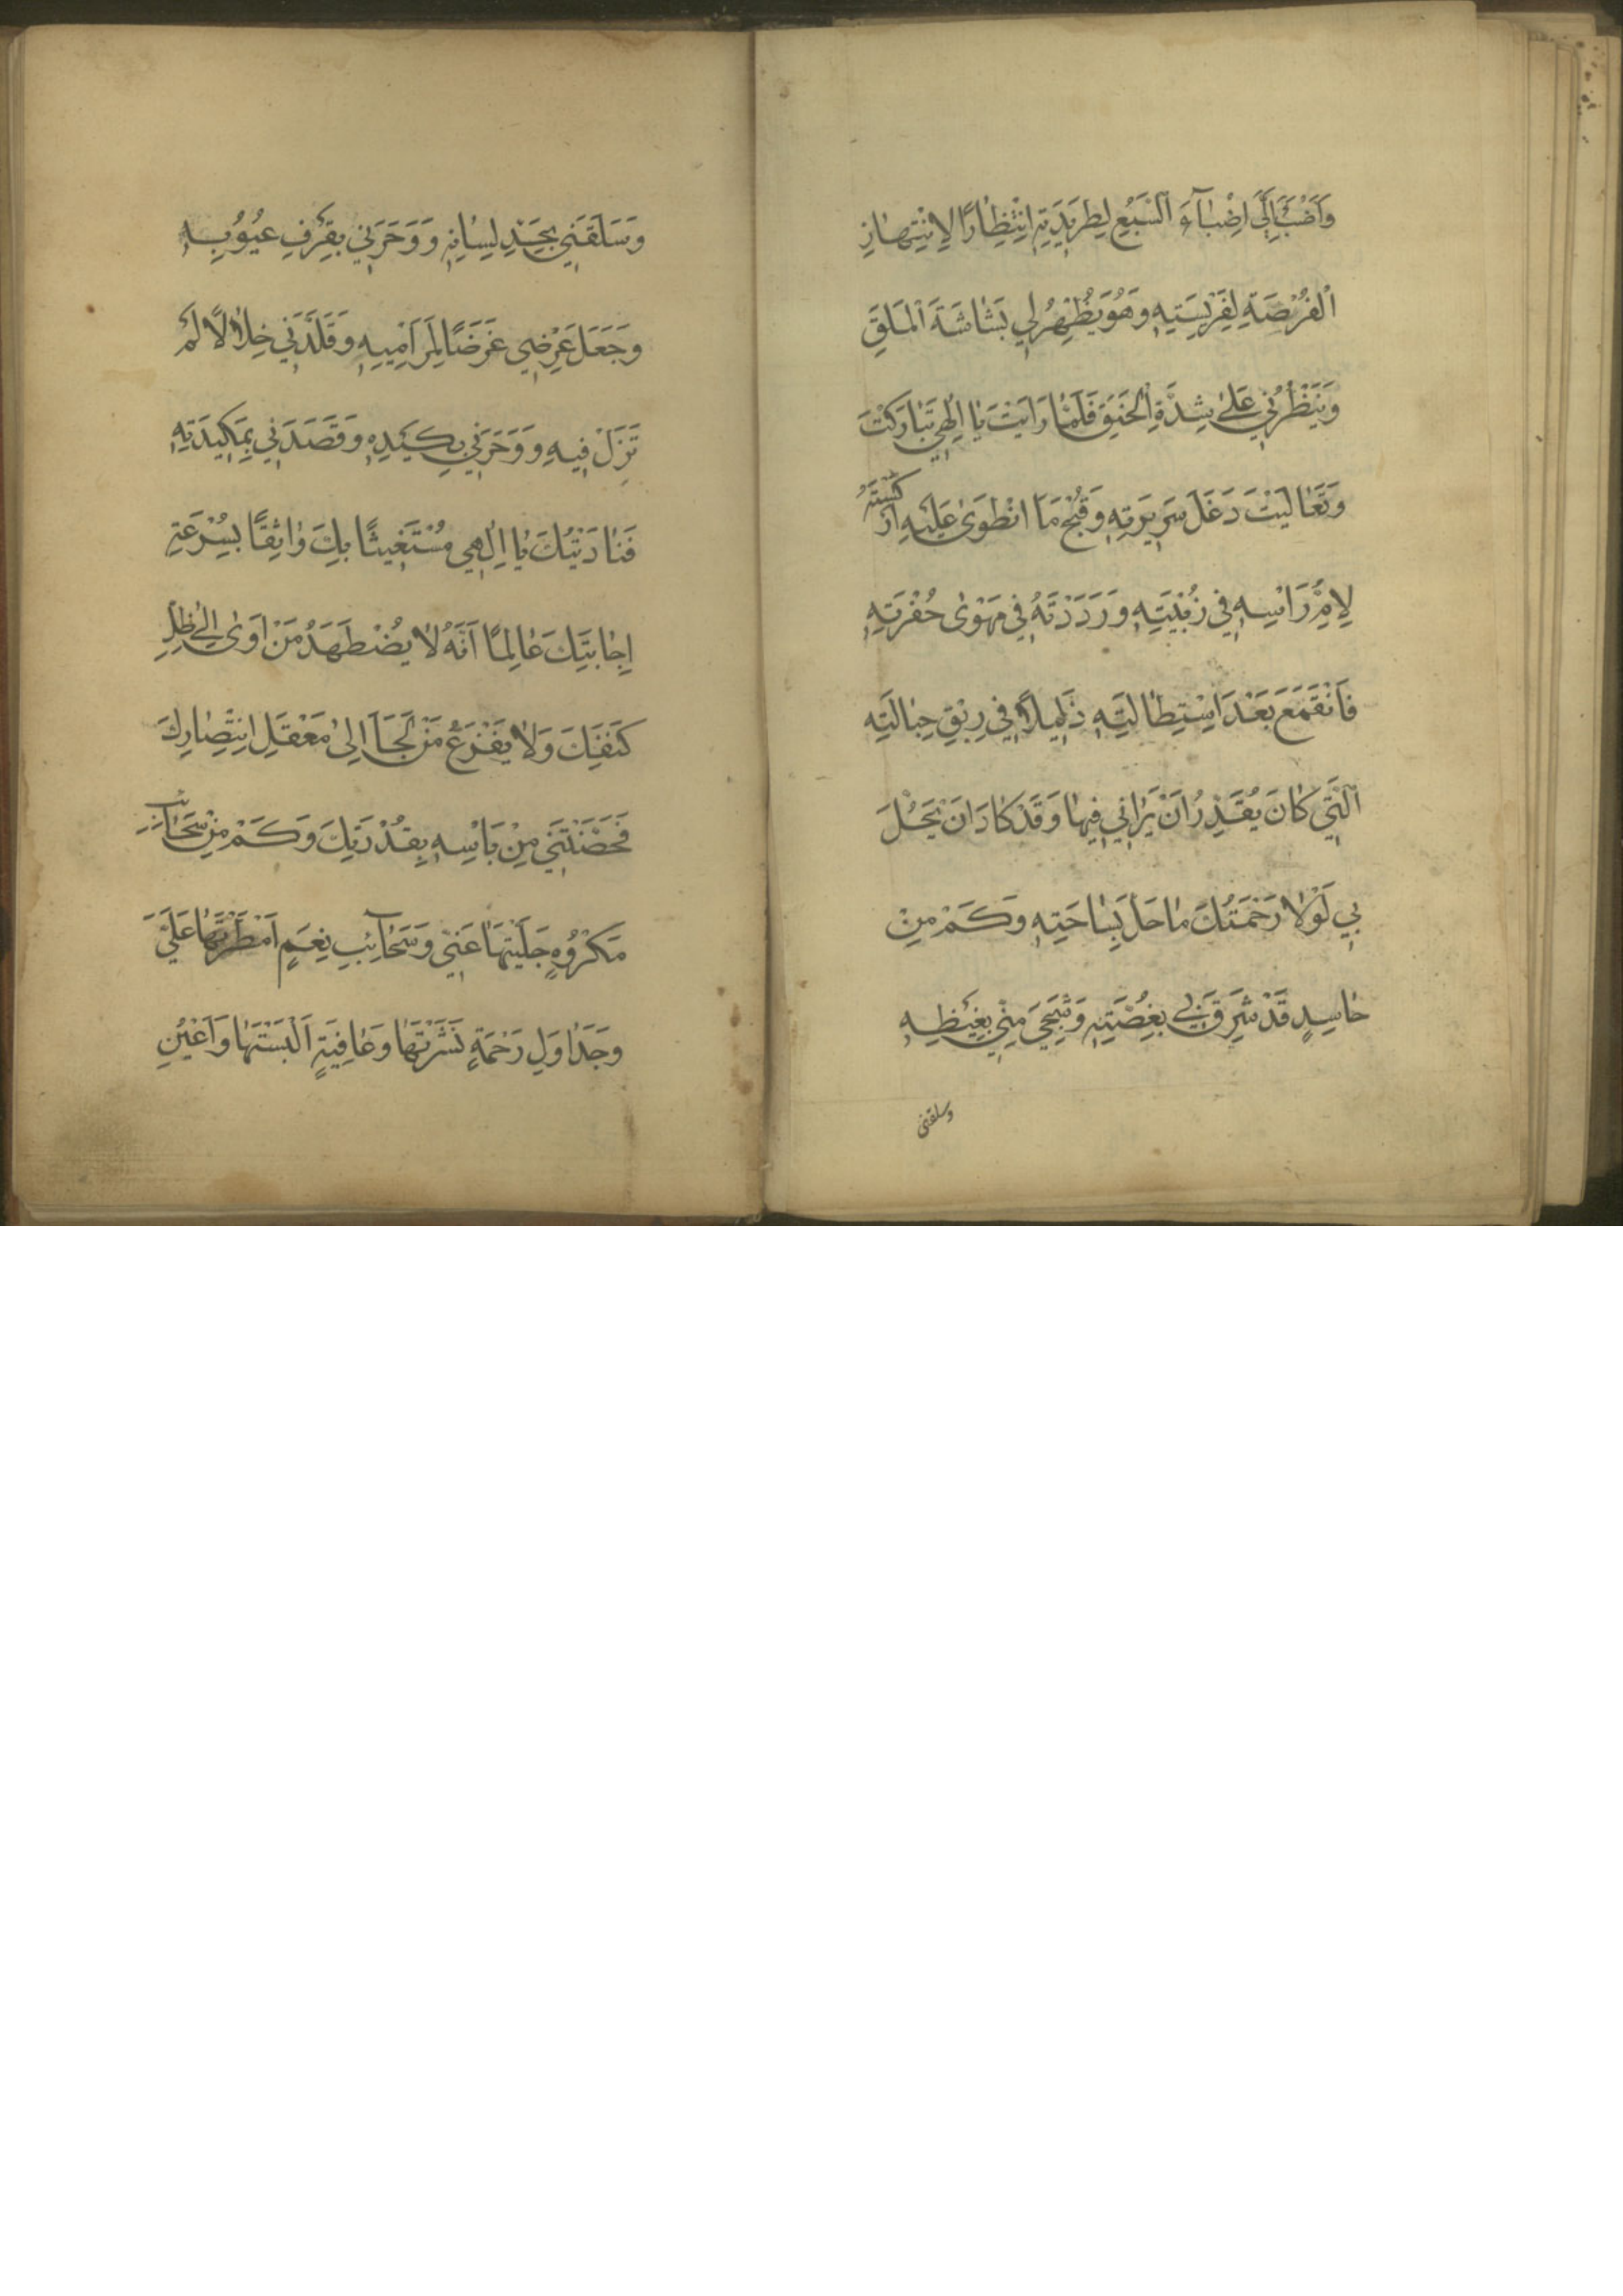 وَاَضْبَأَ اِلَيَّ اِضْبٰآءَ السَّبُعِ لِطَرِيدَتِهِ انْتِظٰارًا لِانْتِهٰازِ
الْفُرْصَةِ لِفَرِيسَتِهِ وَهُوَ يُظْهِرُ لِي بَشٰاشَةَ الْمَلَقِ
وَيَنْظُرُنِي عَلىٰ شِدَّةِ الْحَنَقِ فَلَمّٰا رَاَيْتَ يٰا اِلٰهِي تَبٰارَكْتَ
وَتَعٰالَيْتَ دَغَلَ سَرِيرَتِهِ وَقُبْحَ مَا انْطَوىٰ عَلَيْهِ اَرْكَسْتَهُ
لِاُمِّ رَاْسِهِ فِي زُبْيَتِهِ وَرَدَدْتَهُ فِي مَهْوىٰ حُفْرَتِهِ
فَانْقَمَعَ بَعْدَ اسْتِطٰالَتِهِ ذَلِيلًا فِي رِبَقِ حِبٰالَتِهِ
الَّتِي كٰانَ يُقَدِّرُ اَنْ يَرٰانِي فِيهٰا وَقَدْ كٰادَ اَنْ يَحُلَّ
بِي لَوْلٰا رَحْمَتُكَ مٰا حَلَّ بِسٰاحَتِهِ وَكَمْ مِنْ
حٰاسِدٍ قَدْ شَرِقَ بِي بِغُصَّتِهِ وَشَجِيَ مِنِّي بِغَيْظِهِ
وسلقنى
وَسَلَقَنِي بِحَدِّ لِسٰانِهِ وَوَحَرَنِي بِقَرْفِ عُيُوبِهِ
وَجَعَلَ عِرْضِي غَرَضًا لِمَرٰامِيهِ وَقَلَّدَنِي خِلٰالًا لَمْ
تَزَلْ فِيهِ وَوَحَرَنِي بِكَيْدِهِ وَقَصَدَنِي بِمَكِيدَتِهِ
فَنٰادَيْتُكَ يٰا اِلٰهِي مُسْتَغِيثًا بِكَ وٰاثِقًا بِسُرْعَةِ
اِجٰابَتِكَ عٰالِمًا اَنَّهُ لٰا يُضْطَهَدُ مَنْ اَوىٰ اِلىٰ ظِلِّ
كَنَفِكَ وَلٰا يَفْزَعُ مَنْ لَجَأَ اِلىٰ مَعْقَلِ انْتِصٰارِكَ
فَحَصَّنْتَنِي مِنْ بَاْسِهِ بِقُدْرَتِكَ وَكَمْ مِنْ سَحٰائِبِ
مَكْرُوهٍ جَلَّيْتَهٰا عَنِّي وَسَحٰآئِبِ نِعَمٍ اَمْطَرْتَهٰا عَلَيَّ
وَجَدٰاوِلِ رَحْمَةٍ نَشَرْتَهٰا وَعٰافِيَةٍ اَلْبَسْتَهٰا وَاَعْيُنِ